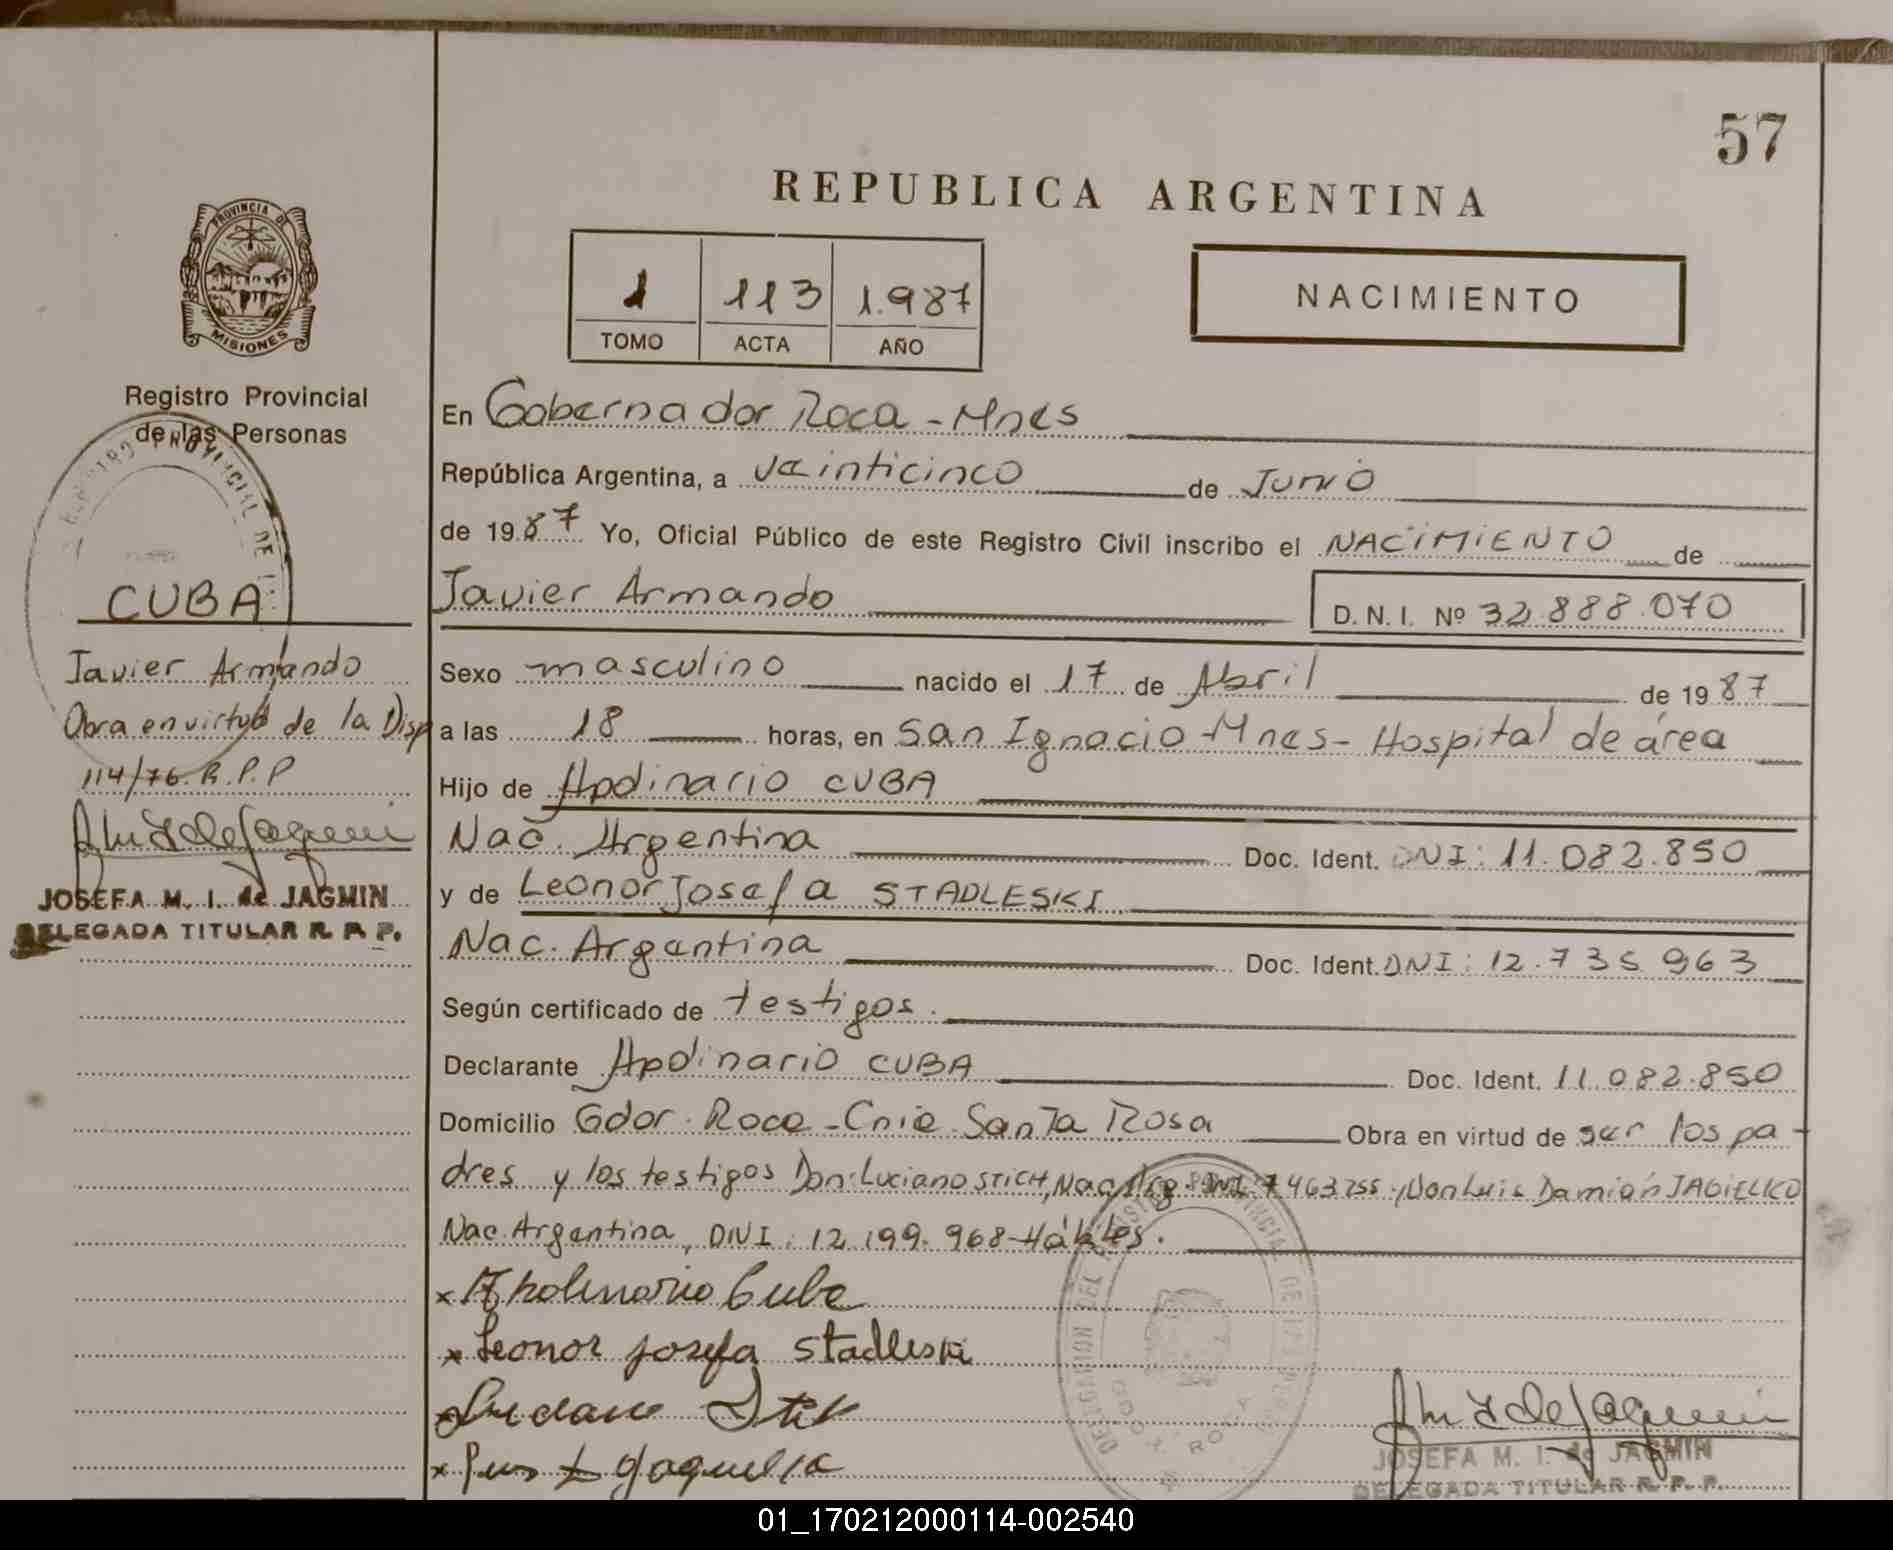 57
REPUBLICA ARGENTINA
PROVINCIA DE
MISIONES
1 113 1.987
TOMO ACTA AÑO
NACIMIENTO
Registro Provincial
de las Personas
CUBA
Javier Armando
Obra en virtud de la Disp
114/76. R.P.P
JOSEFA M. I. de JAGMIN
DELEGADA TITULAR R. P. P.
En Gobernador Roca - Mnes
República Argentina, a veinticinco de Junio
de 1987 Yo, Oficial Público de este Registro Civil inscribo el NACIMIENTO de
Javier Armando D. N. I. Nº 32.888.070
Sexo masculino nacido el 17 de Abril de 1987
a las 18 horas, en San Ignacio - Mnes - Hospital de área
Hijo de Apolinario CUBA
Nac. Argentina Doc. Ident. DNI: 11.082.850
y de Leonor Josefa STADLESKI
Nac. Argentina Doc. Ident. DNI: 12.735.963
Según certificado de testigos.
Declarante Apolinario CUBA Doc. Ident. 11.082.850
Domicilio Gdor. Roca - Cnia Santa Rosa Obra en virtud de ser los pa-
dres y los testigos Don: Luciano STICH, Nac Arg. DNI. 7463255, Don Luis Damián JAGIELKO
Nac. Argentina, DNI: 12.199.968 - Hábiles.
x Apolinario Cuba
x Leonor Josefa Stadleski
JOSEFA M. I. de JAGMIN
DELEGADA TITULAR R. P. P.
01_170212000114-002540